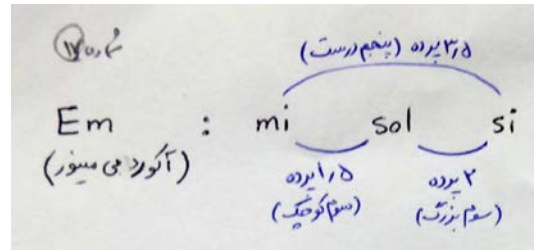 شماره ۱۷
۳٫۵ پرده (پنجم درست)
Em : mi sol si
(آکورد می مینور)
۱٫۵ پرده ۲ پرده
(سوم کوچک) (سوم بزرگ)